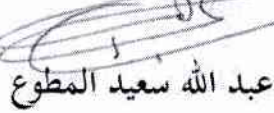 عبد الله سعيد المطوع